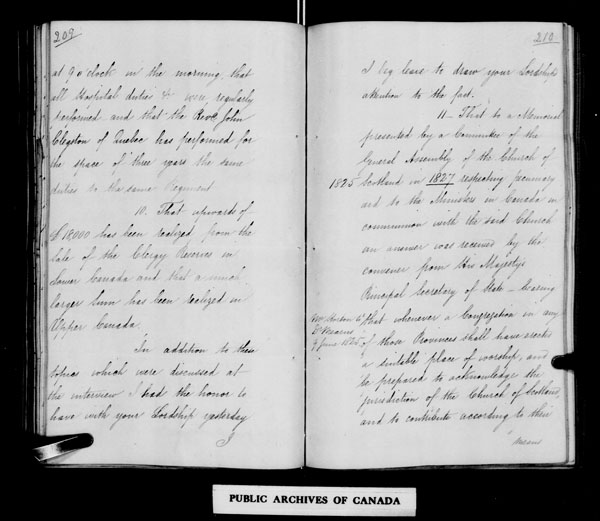 209
at 9 o'clock in the morning that
all Hospital duties &c were regularly
performed and that the Revd John
Clugston of Quebec has performed for
the space of three years the same
duties to the same Regiment
10. That upwards of
£18000 has been realized from the
sale of the Clergy Reserves in
Lower Canada and that a much
larger sum has been realized in
Upper Canada.
In addition to these
topics which were discussed at
the interview I had the honor to
have with your Lordship yesterday
I
210
I beg leave to draw your Lordship's
attention to the fact.
11. That to a Memorial
presented by a Committee of the
General Assembly of the Church of
1825 Scotland in 1827 respecting pecuniary
aid to the Ministers in Canada in
communion with the said Church
an answer was received by the
convener from His Majesty's
Principal Secretary of State – bearing
Mr Horton to
Dr Mearns
9 June 1825
that whenever a Congregation in any
of those Provinces shall have erected
a suitable place of worship, and
be prepared to acknowledge the
jurisdiction of the Church of Scotland,
and to contribute according to their
means
PUBLIC ARCHIVES OF CANADA